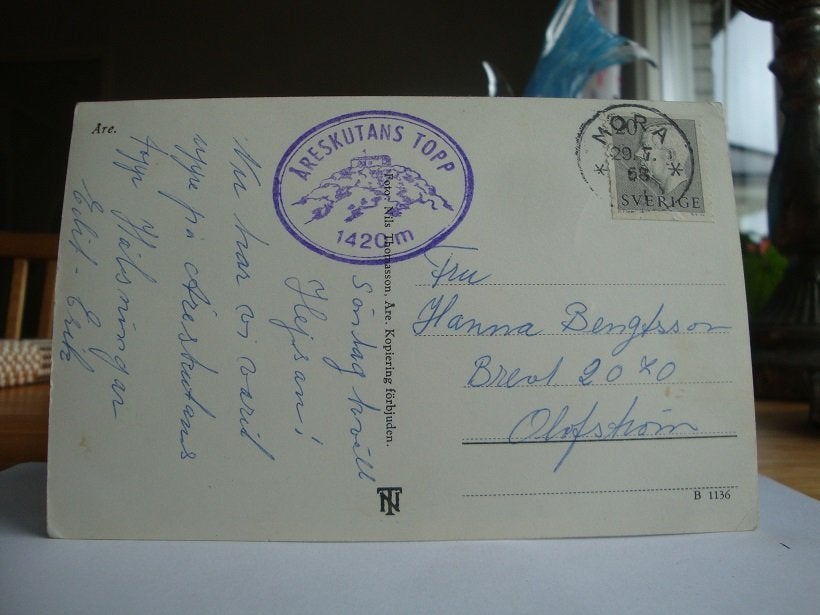 Åre.
ÅRESKUTANS TOPP
1420 m
Söndag kväll
Hejsan!
Nu har vi varit
uppe på Åreskutans
topp Hälsningar
Foto: Nils Thomasson, Åre. Kopiering förbjuden.
NT
MORA
20
29. 7.
SVERIGE
Fru
Hanna Bengtsson
Brevl 2070
Olofström
B 1136